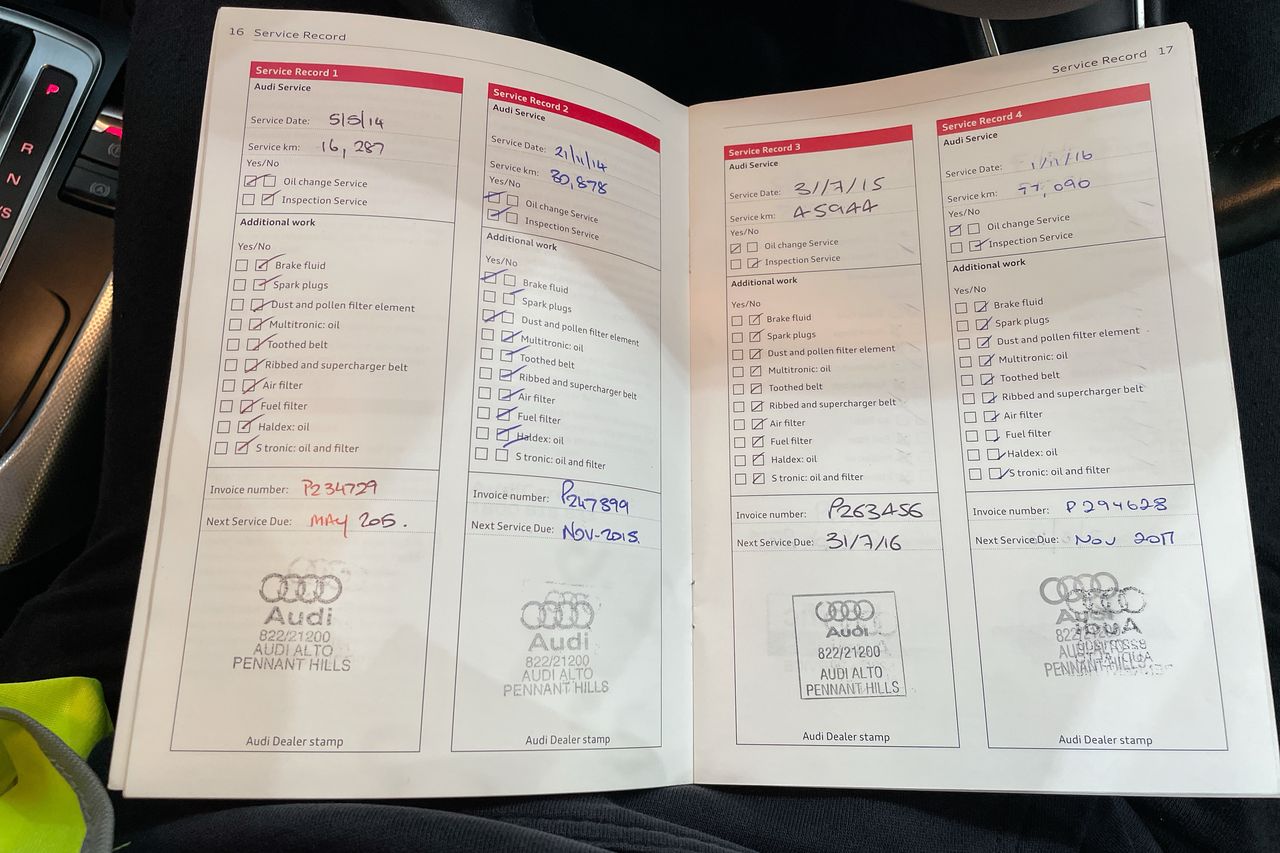 16 Service Record
Service Record 1
Audi Service
Service Date: 5/5/14
Service km: 16,287
Yes/No
Oil change Service
Inspection Service
Additional work
Yes/No
Brake fluid
Spark plugs
Dust and pollen filter element
Multitronic: oil
Toothed belt
Ribbed and supercharger belt
Air filter
Fuel filter
Haldex: oil
S tronic: oil and filter
Invoice number: P234729
Next Service Due: MAY 205.
Audi
822/21200
AUDI ALTO
PENNANT HILLS
Audi Dealer stamp
Service Record 2
Audi Service
Service Date: 21/11/14
Service km: 30,878
Yes/No
Oil change Service
Inspection Service
Additional work
Yes/No
Brake fluid
Spark plugs
Dust and pollen filter element
Multitronic: oil
Toothed belt
Ribbed and supercharger belt
Air filter
Fuel filter
Haldex: oil
S tronic: oil and filter
Invoice number: P247899
Next Service Due: NOV-2015.
Audi
822/21200
AUDI ALTO
PENNANT HILLS
Audi Dealer stamp
Service Record 17
Service Record 3
Audi Service
Service Date: 31/7/15
Service km: 45944
Yes/No
Oil change Service
Inspection Service
Additional work
Yes/No
Brake fluid
Spark plugs
Dust and pollen filter element
Multitronic: oil
Toothed belt
Ribbed and supercharger belt
Air filter
Fuel filter
Haldex: oil
S tronic: oil and filter
Invoice number: P263456
Next Service Due: 31/7/16
Audi
822/21200
AUDI ALTO
PENNANT HILLS
Audi Dealer stamp
Service Record 4
Audi Service
Service Date: 1/11/16
Service km:
Yes/No
Oil change Service
Inspection Service
Additional work
Yes/No
Brake fluid
Spark plugs
Dust and pollen filter element
Multitronic: oil
Toothed belt
Ribbed and supercharger belt
Air filter
Fuel filter
Haldex: oil
S tronic: oil and filter
Invoice number: P294628
Next Service Due: NOV 2017
Audi Dealer stamp
P
R
N